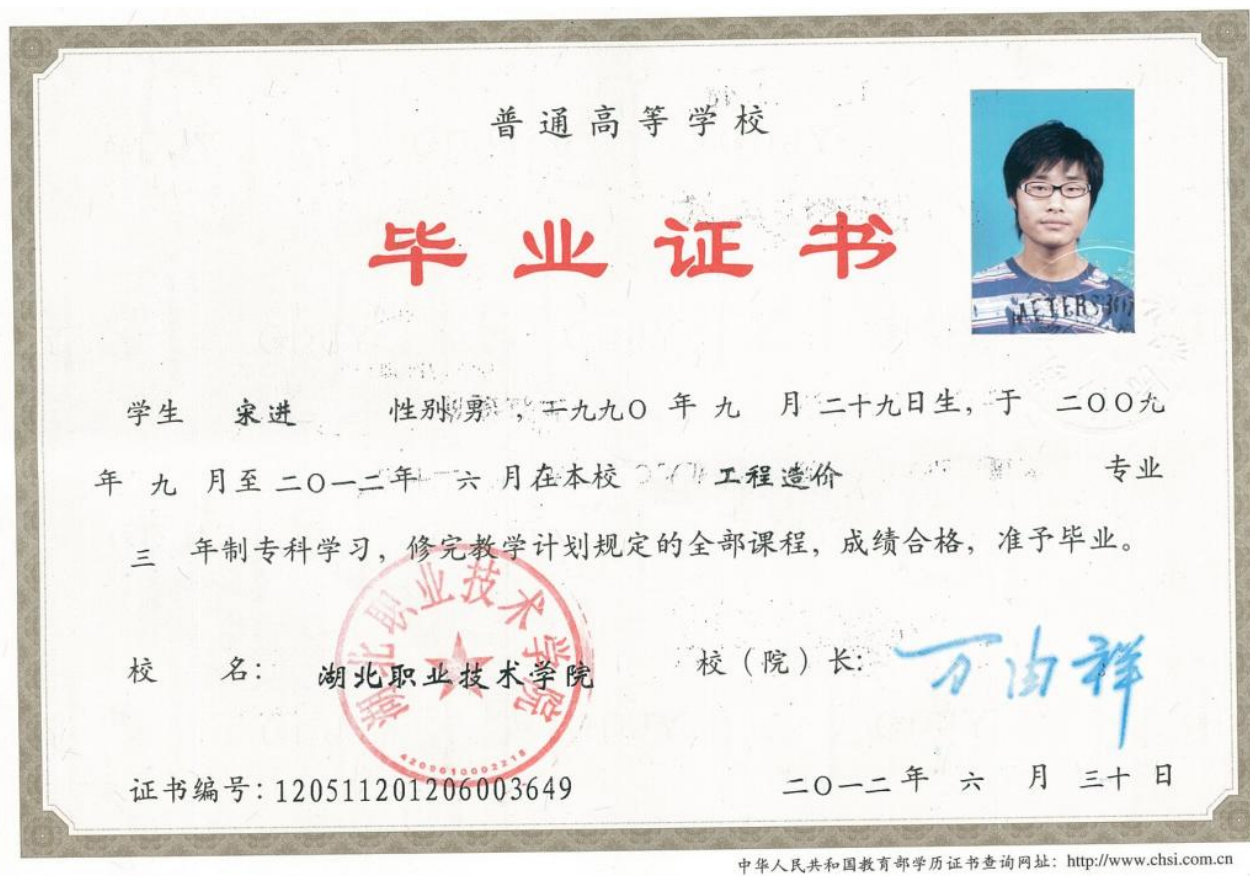 普通高等学校
毕业证书
METERS
学生 宋进 性别 男 ，一九九〇 年 九 月 二十九日生，于 二〇〇九
年 九 月至 二〇一二年 六 月在本校 工程造价 专业
三 年制专科学习，修完教学计划规定的全部课程，成绩合格，准予毕业。
湖北职业技术学院
校 名： 湖北职业技术学院 校（院）长： 万由祥
4200010002218
证书编号：120511201206003649 二〇一二年 六 月 三十 日
中华人民共和国教育部学历证书查询网址：http://www.chsi.com.cn